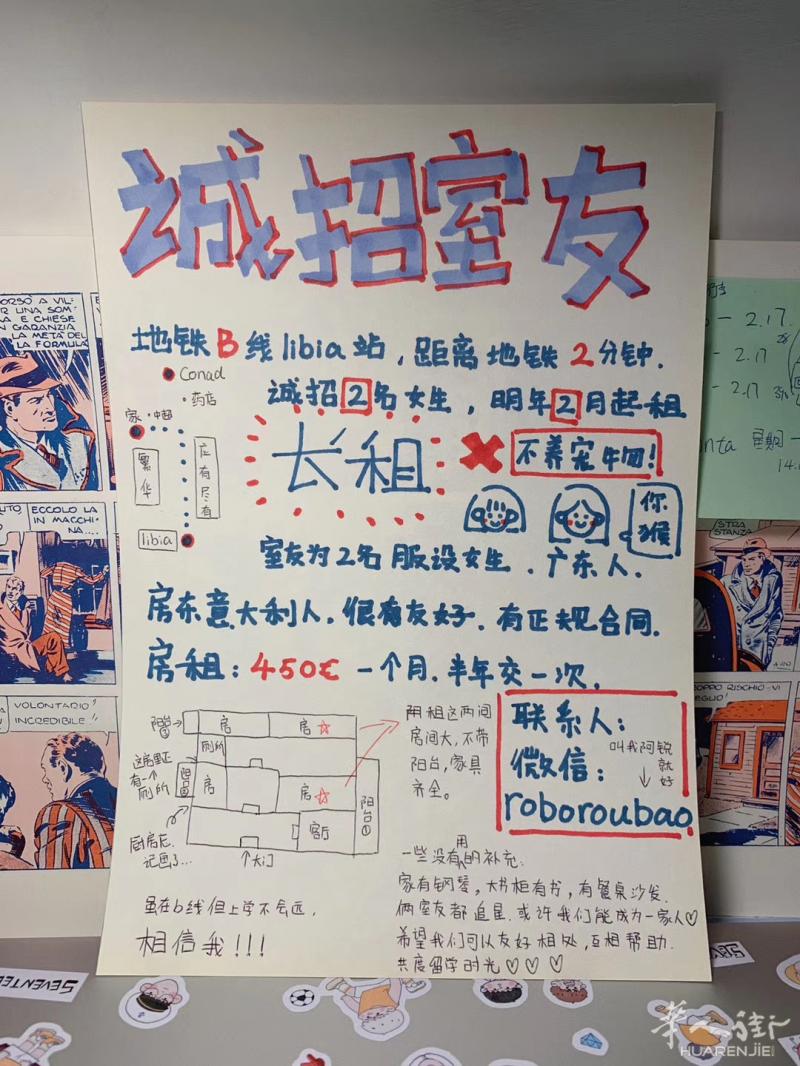 诚招室友
地铁B线libia站，距离地铁2分钟.
诚招2名女生，明年2月起租
Conad
药店
家
中超
繁华
应有尽有
libia
长租
不养宠物！
你猴
室友为2名服设女生．广东人．
房东意大利人，很有友好．有正规合同．
房租：450€一个月．半年交一次．
阳台②
房
房☆
厕所
这房里还有一个厕所
阳台
房
房☆
阳台①
客厅
大门
厨房忘记画了...
阴租这两间
房间大，不带
阳台，家具
齐全。
联系人：
叫我阿锐就好
微信：
roboroubao
虽在b线但上学不会远．
相信我！！！
一些没有用的补充：
家有钢琴，大书柜有书，有餐桌沙发．
俩室友都追星．或许我们能成为一家人♡
希望我们可以友好相处，互相帮助．
共度留学时光♡♡♡
CHIESE
GARANZIA
LA METÀ DEL
LA FORMULA
ECCOLO LA
IN MACCHI
NA....
VOLONTARIO!
INCREDIBILE!
2.17.
2.17
2.17
星期一
14.
STRA
STANZA
TROPPO RISCHIO
SEVENTEE
SEVENTEE
华人街
HUARENJIE